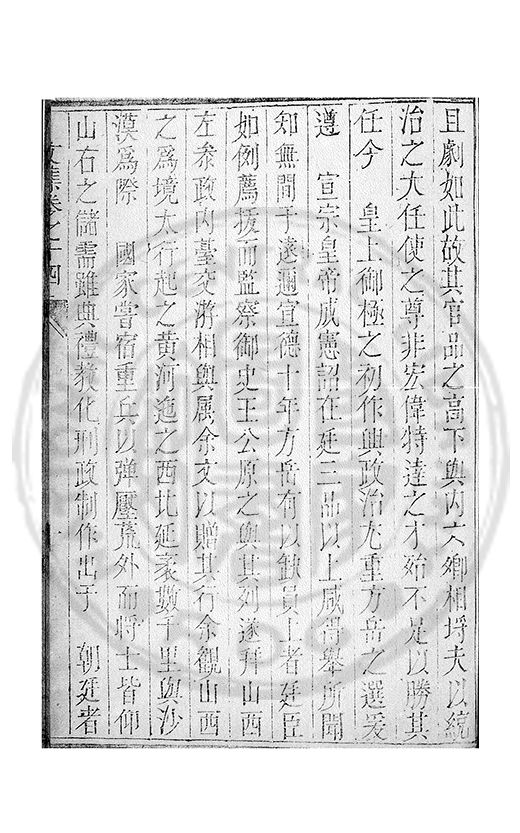 且劇如此故其官品之高下與内六卿相埒夫以統
治之大任使之尊非宏偉特達之才殆不足以勝其
任今　皇上御極之初作興政治尤重方岳之選爰
遵　宣宗皇帝成憲詔在廷三品以上咸得舉所聞
知無間于遠邇宣德十年方岳有以缺員上者廷臣
如例薦援而監察御史王公原之與其列遂拜山西
左叅政内臺交游相與属余文以贈其行余觀山西
之爲境太行起之黄河迤之西北延袤數千里與沙
漠爲際　國家嘗宿重兵以弹壓荒外而将士皆仰
山右之儲需雖典禮教化刑政制作出于　朝廷者
文集卷之十四